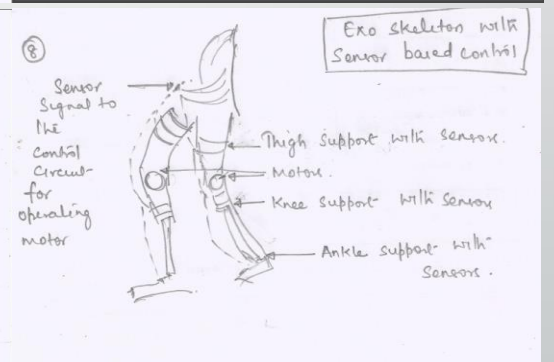 8
Exo skeleton with
Sensor based control
Sensor
Signal to
the
control
circuit
for
operating
motor
Thigh support with sensors.
Motors.
Knee support with sensors
Ankle support with
Sensors.